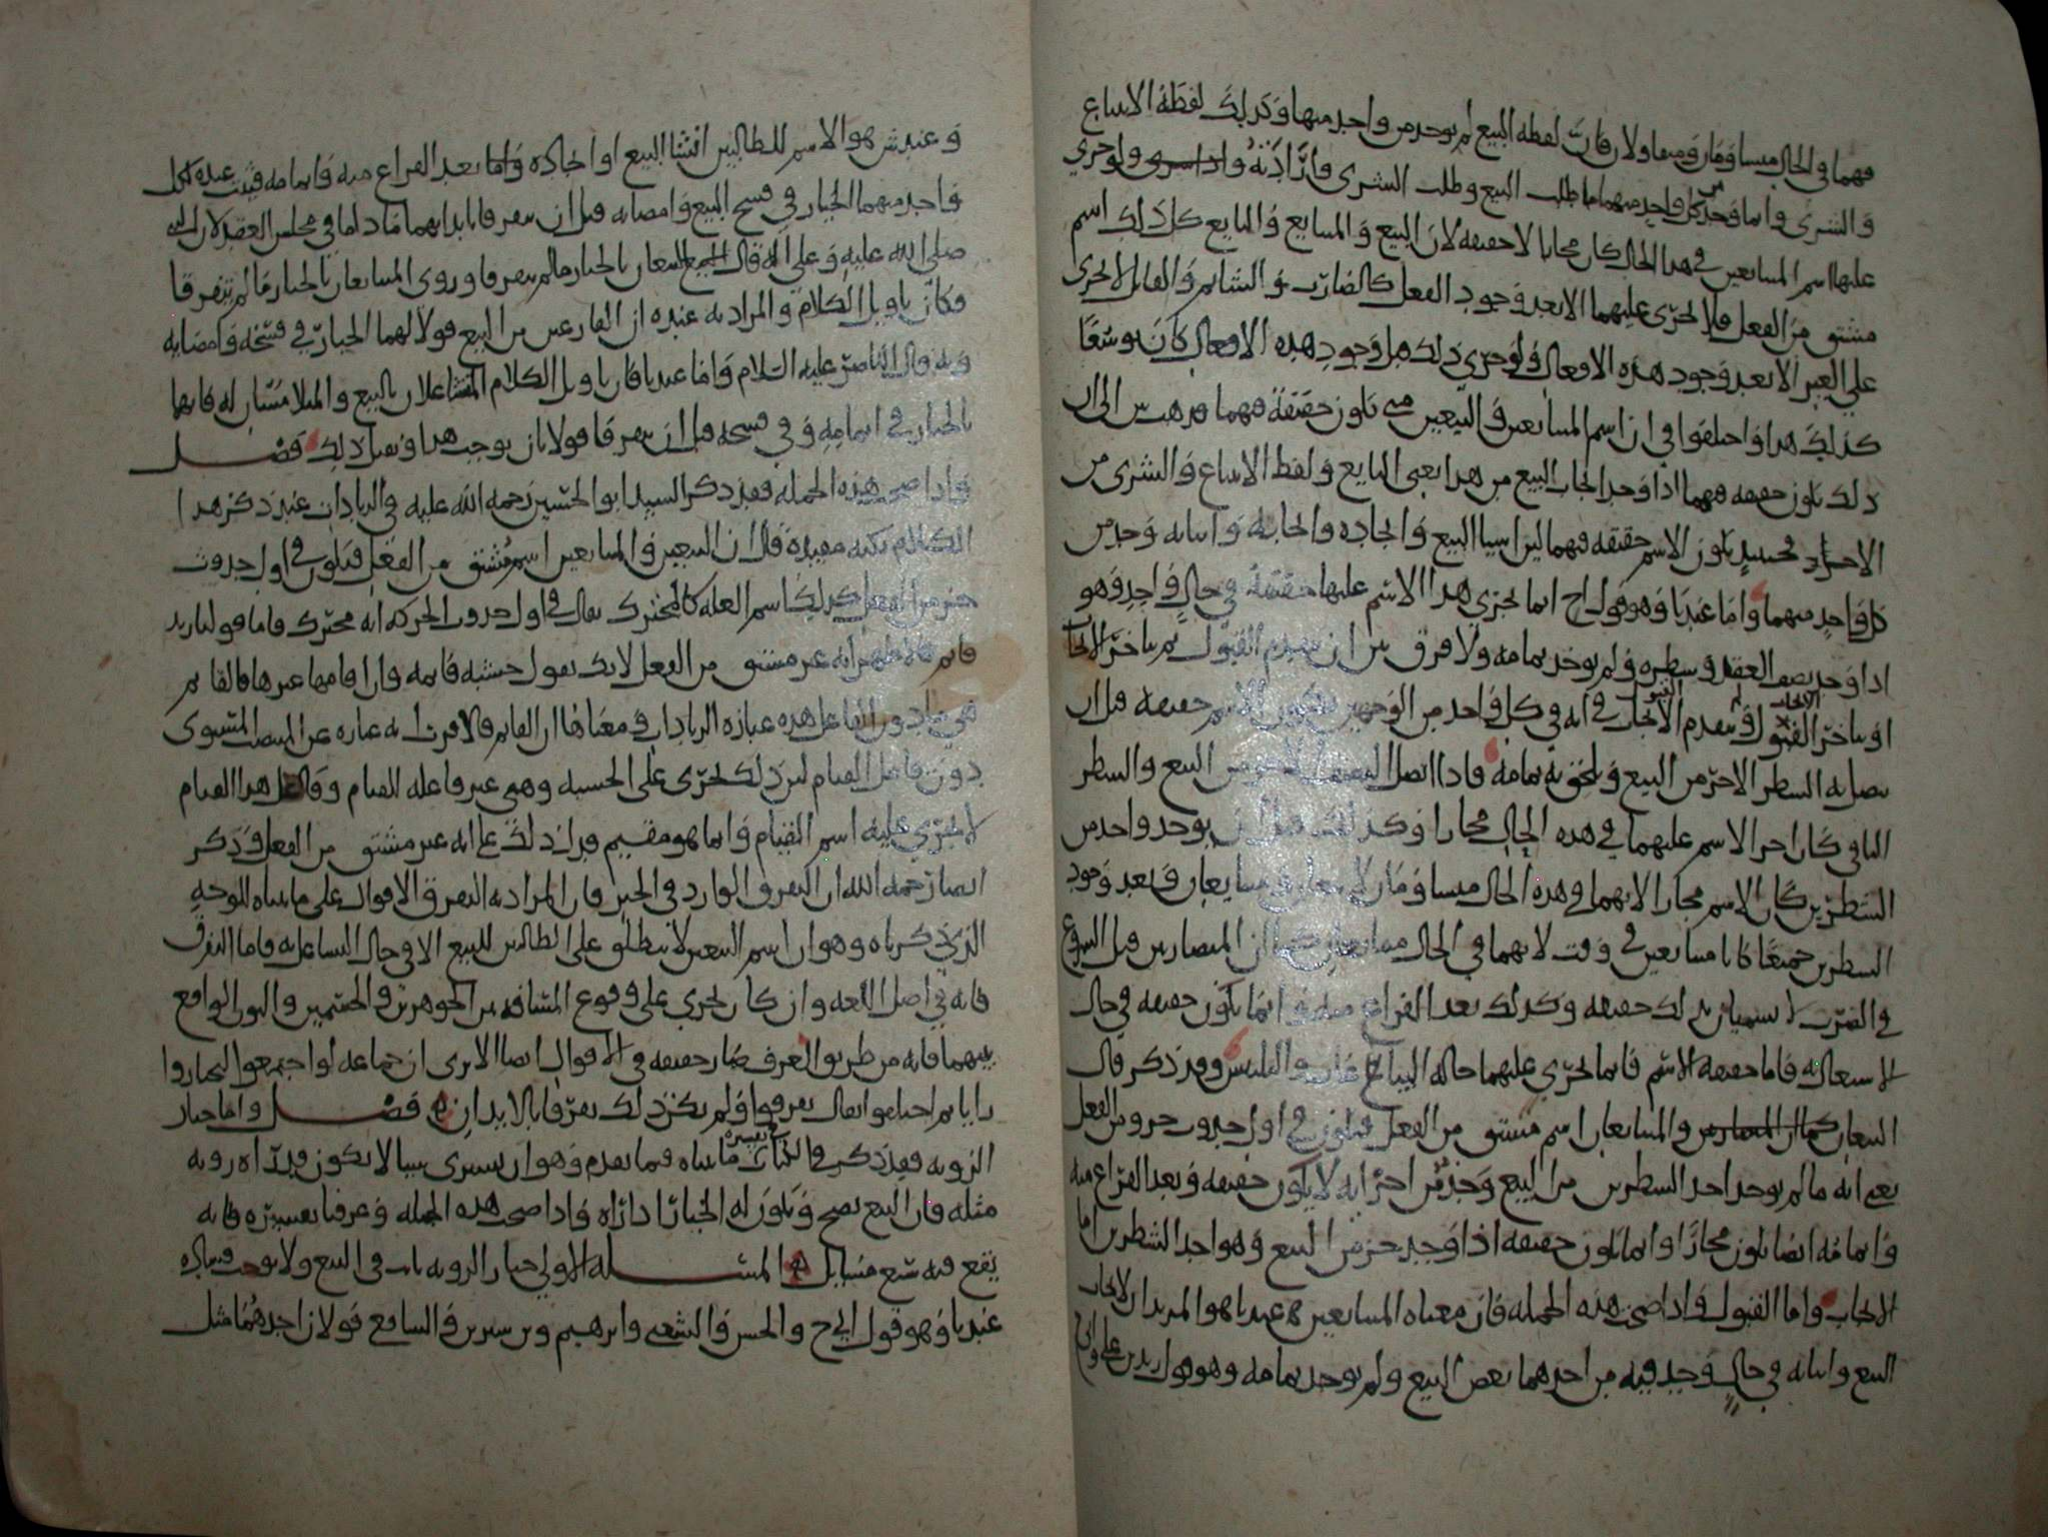 فهما في الحال متساومان ومتقاولان فان لفظة البيع لم توجد من واحد منهما وكذلك لفظة الابتياع
والشرى وانما وجد من كل واحد منهما طلب البيع وطلب الشرى وارادته ولو جرى
عليهما اسم المتبايعين في هذا الحال كان مجازا لا حقيقة لان البيع والمبايع والبايع كل ذلك اسم
مشتق من الفعل فلا يجري عليهما الا بعد وجود الفعل كالضارب والشاتم والقاتل لا يجري
على الغير الا بعد وجود هذه الافعال ولو جرى ذلك قبل وجود هذه الافعال كان توسعا
كذلك هذا واختلفوا في ان اسم المتبايعين والبيعين متى يكون حقيقة فيهما فذهب ش الى ان
ذلك يكون حقيقة فيهما اذا وجد ايجاب البيع من هذا يعني البايع ولفظ الابتياع والشرى من
الاخر فحينئذ يكون الاسم حقيقة فيهما لان انشا البيع وايجاده وايجابه واثباته وجد من
كل واحد منهما واما عندنا وهو قول ح انما يجري هذا الاسم عليهما حقيقة في حال واحد وهو
اذا وجد نصف العقد وشطره ولم يوجد تمامه ولا فرق بين ان يتقدم القبول ثم يتاخر الايجاب
او يتاخر القبول ويتقدم الايجاب في انه في كل واحد من الوجهين يكون الاسم حقيقة قبل ان
يتصل به الشطر الاخر من البيع ويلحق به تمامه فاذا اتصل من البيع والشطر
الباقي كان اجرا الاسم عليهما في هذه الحال مجازا وكذلك قبل ان يوجد واحد من
الشطرين كان الاسم مجازا لانهما في هذه الحال متساومان لا متبايعان وبعد وجود
الشطرين جميعا كانا متبايعين في وقت لا انهما في الحال متبايعان كما ان المتضاربين قبل الشروع
في الضرب لا يسميان بذلك حقيقة وكذلك بعد الفراغ منه وانما يكون حقيقة في حال
الاشتغال به فاما حقيقة الاسم فانما يجري عليهما حالة البياع والتلبس وقد ذكر قال
البيعان والمتبايعان اسم مشتق من الفعل فيكون في اول حدوث جزو من الفعل
يعني انه ما لم يوجد احد الشطرين من البيع وجد من اخر انه لا يكون حقيقة وبعد الفراغ منه
واتمامه ايضا يكون مجازا وانما يكون حقيقة اذا وجد جزء من البيع وهو احد الشطرين اما
الايجاب واما القبول فاذا صحت هذه الجملة فان معناه المتبايعين عندنا هو المريدان لايجاب
البيع واثباته في حال وجد فيه من احدهما بعض البيع ولم يوجد تمامه وهو قول زيد بن علي وابي ح
وعند ش هو الاسم للطالبين انشا البيع او ايجاده واما بعد الفراغ منه واتمامه فيثبت عنده لكل
واحد منهما الخيار في فسخ البيع وامضايه قبل ان يتفرقا بابدانهما ما داما في مجلس العقد لان النبي
صلى الله عليه وعلى اله قال البيعان بالخيار ما لم يتفرقا وروي المتبايعان بالخيار ما لم يتفرقا
فكان تاويل الكلام والمراد به عنده ان الفارغين من البيع قولا لهما الخيار في فسخه وامضايه
وبه قال الناصر عليه السلام واما عندنا فان تاويل الكلام المتشاغلان بالبيع والملابسان له فانهما
بالخيار في اتمامه وفي فسخه قبل ان يتفرقا قولا بان يوجب هذا ويقبل ذلك فصل
واذا صحت هذه الجملة فقد ذكر السيد ابو الحسين رحمة الله عليه في الزيادات عند ذكر هذا
الكلام نكتة مفيدة قال ان البيعين والمتبايعين اسم مشتق من الفعل فيكون في اول حدوث
جزء من الفعل كذلك اسم العلة كالمتحرك يقال في اول حدوث الحركة انه متحرك فاما قولنا زيد
قايم فالاظهر انه غير مشتق من الفعل لانك تقول خشبة قايمة وان اقامها غيرها فالقايم
هي دون الفاعل هذه عبارة الزيادات ومعناها ان القايم فالاقرب انه عبارة عن المنتصب المستوي
دون فاعل القيام لان ذلك يجري على الخشبة وهي غير فاعلة للقيام وفاعل هذا القيام
لا يجري عليه اسم القيام وانما هو مقيم فبان ذلك على انه غير مشتق من الفعل وذكر
ايضا رحمه الله ان التفرق الوارد في الخبر فان المراد به التفرق في الاقوال على ما بيناه للوجه
الذي ذكرناه وهو ان اسم البيعين لا ينطلق على الطالبين للبيع الا في حال التشاغل به فاما التفرق
فانه في اصل اللغة وان كان يجري على وقوع المسافة بين الجوهرين والجسمين والبون الواقع
بينهما فانه من طريق العرف صار حقيقة في الاقوال ايضا الا ترى ان جماعة لو اجتمعوا ليختاروا
رايا ثم اختلفوا يقال تفرقوا ولم يكن ذلك تفرقا بالابدان فصل واما خيار
الروية فقد ذكر في الكتاب تفسيره ما بيناه فيما تقدم وهو ان يشتري شيا لا يكون قد راه روية
مثله فان البيع يصح ويكون له الخيار اذا راه فاذا صحت هذه الجملة وعرفنا تفسيره فانه
يقع فيه تسع مسايل المسئلة الاولى خيار الروية ثابت في البيع ولا يوجب فساده
عندنا وهو قول ابي ح والحسن والشعبي وابرهيم وبن سيرين وللشافعي قولان احدهما مثل